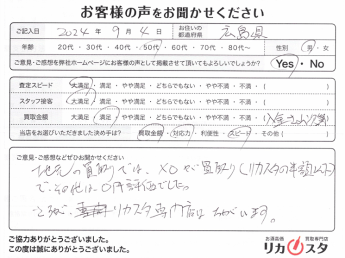 お客様の声をお聞かせください
ご記入日 2024年 9月 4日 お住いの都道府県 広島県
年齢 20代・30代・40代・50代・60代・70代・80代〜 性別 男・女
ご意見・ご感想を弊社ホームページにお客様の声として掲載させて頂いてもよろしいでしょうか? Yes・No
査定スピード 大満足・満足・やや満足・どちらでもない・やや不満・不満・( )
スタッフ接客 大満足・満足・やや満足・どちらでもない・やや不満・不満・( )
買取金額 大満足・満足・やや満足・どちらでもない・やや不満・不満・(
当店をお選びいただきました決め手は? 買取金額・対応力・利便性・スピード・その他( )
ご意見・ご感想などぜひお聞かせください
地元の買取りでは、XOや買取り(リカスタの半額以下)
で、その他は0円評価でした。
リカスタ専門店はちがいます。
ご協力ありがとうございました。
この度は誠にありがとうございました。
お酒高価買取専門店
リカスタ